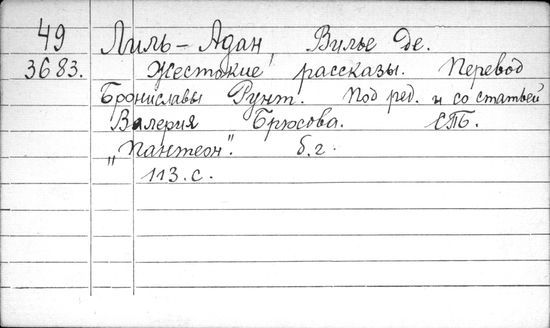 49 Лиль-Адан, Вилье де.
3683. Жестокие рассказы. Перевод
Брониславы Рунт. Под ред. и со статьей
Валерия Брюсова. СПБ.
„Пантеон". б.г.
113.с.